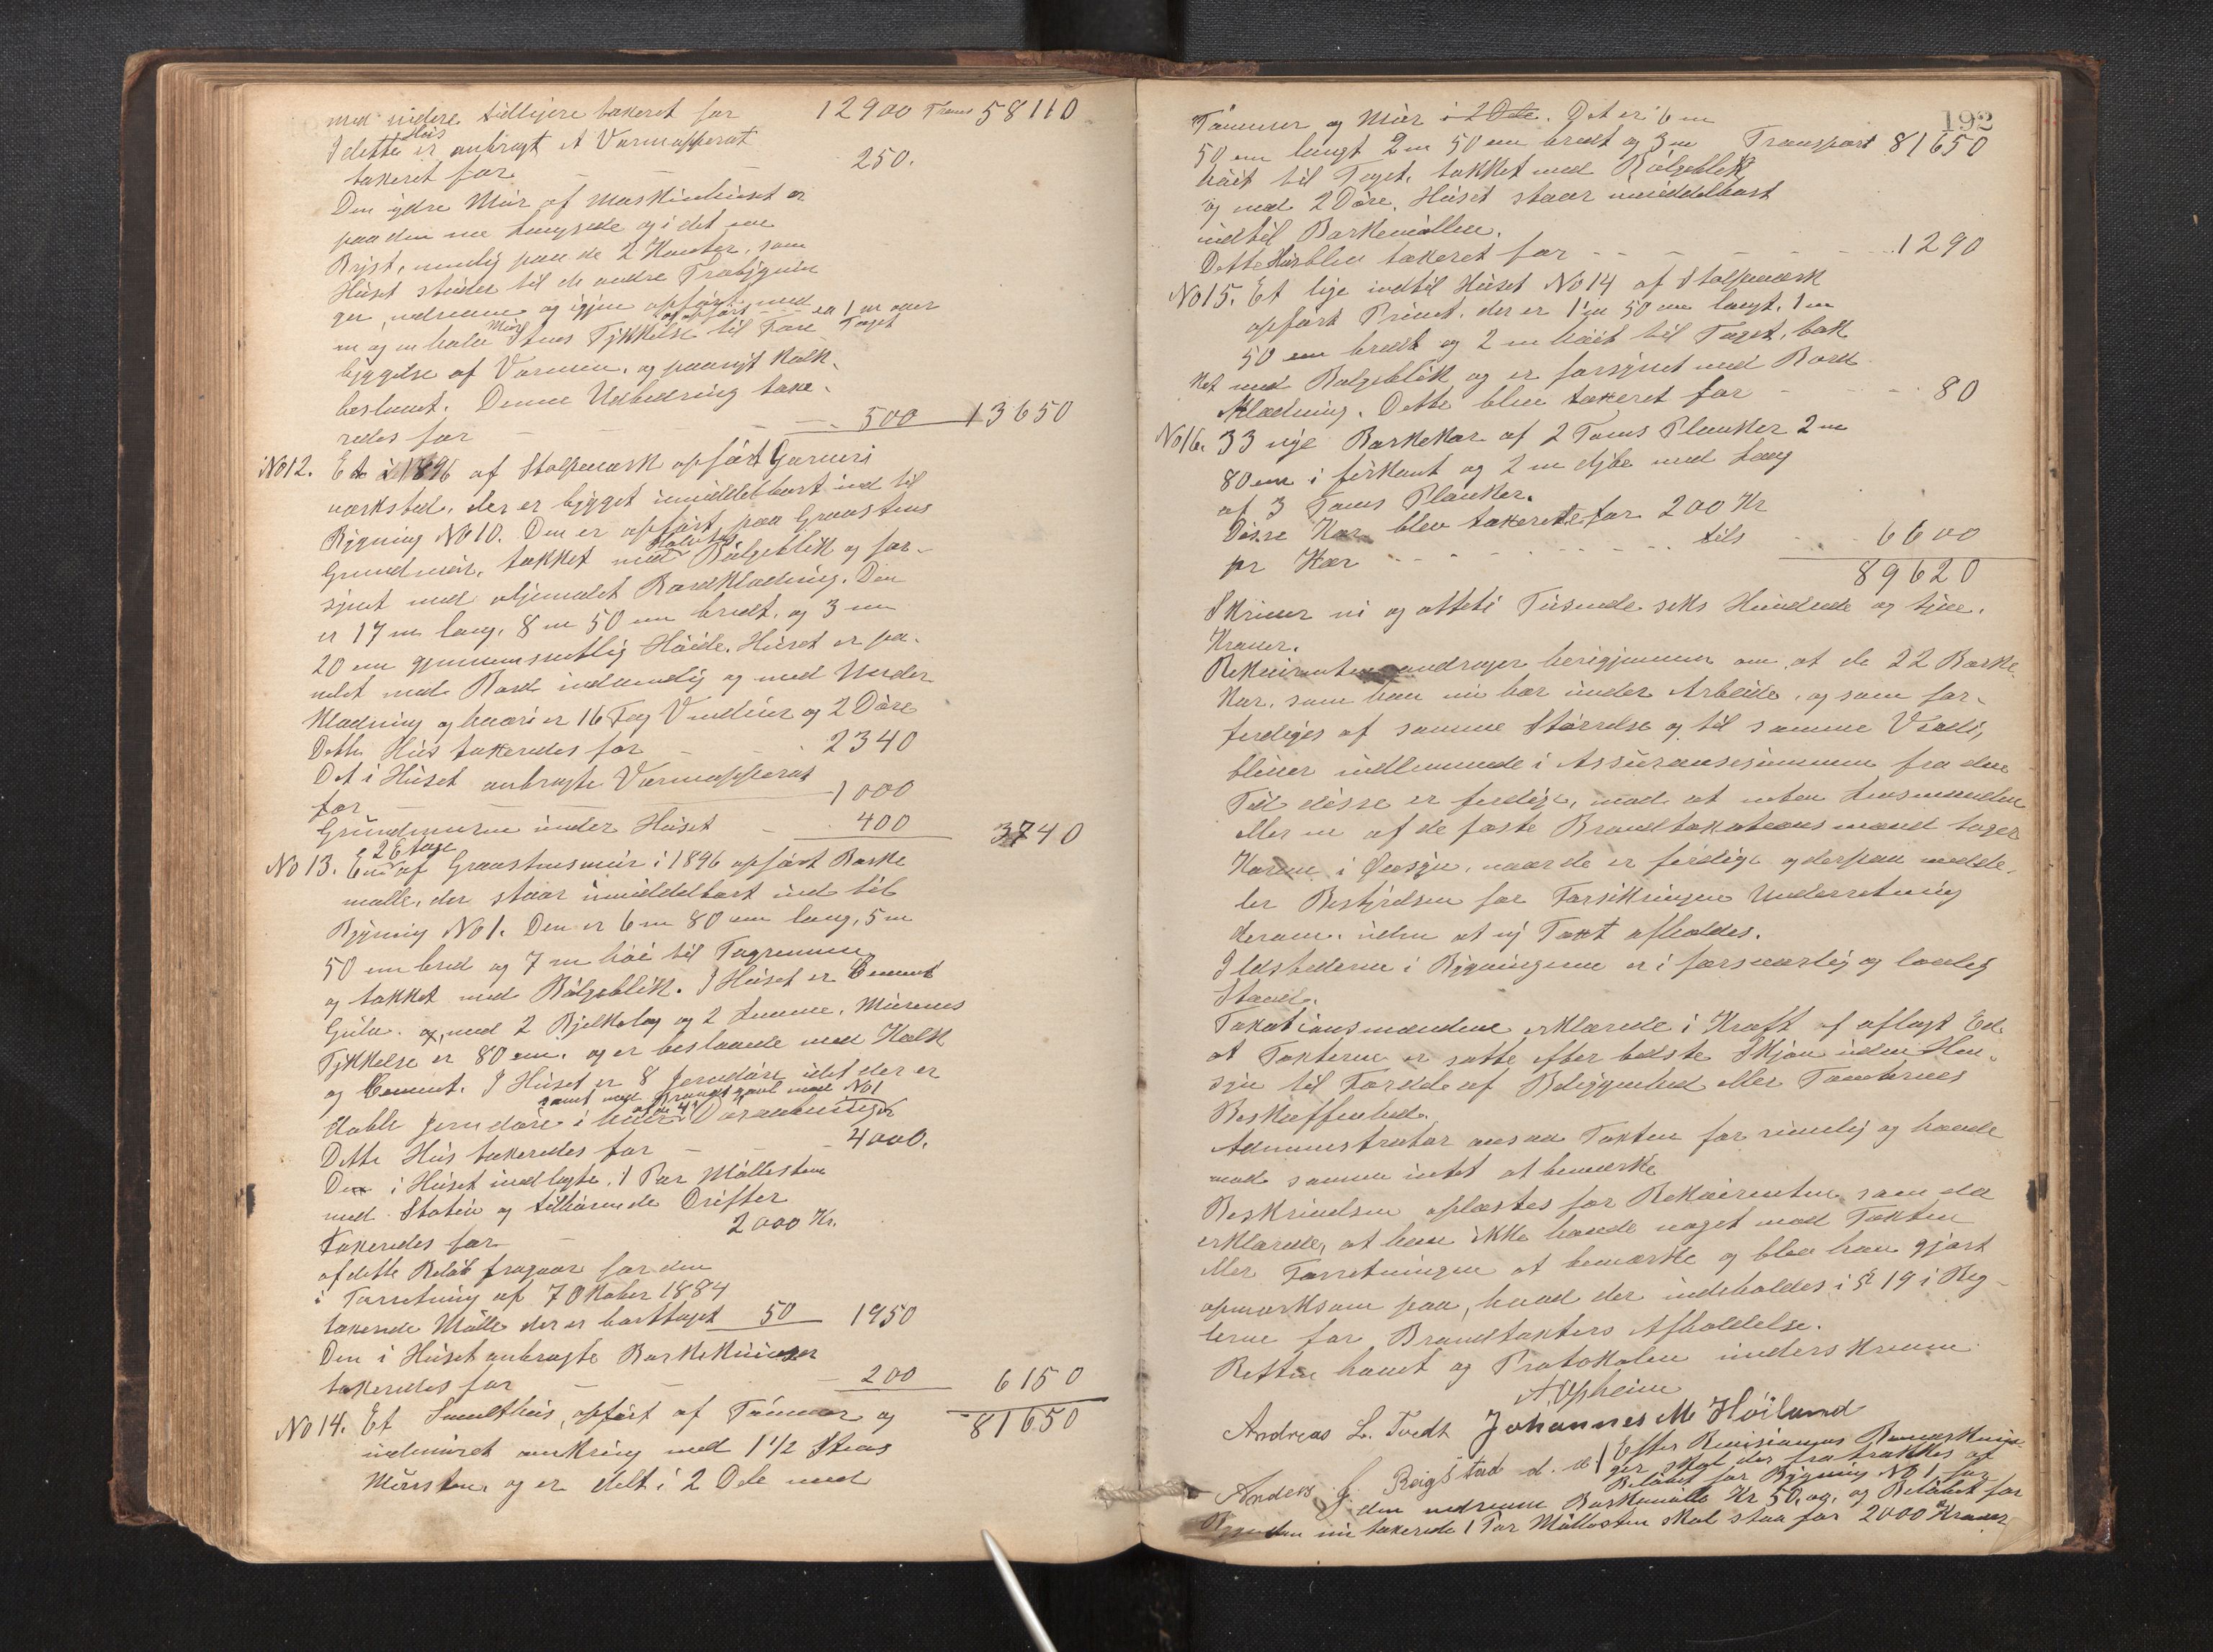 med videre tidligere taxeret for 12900 Trans 58110
I dette Hus er anbragt et Varmapperat
taxeret for 250.
Den ydre Mur af Maskinhuset er
paa den ene Langside og i det ene
Bryst, nemlig paa de 2 Kanter, som
Huset støder til de andre Træbygnin
ger, nedreven og igjen opført med
en og en halv Mur Stens Tykkelse til Fore
byggelse af Varmen, og paanyt Kalk-
beslaaet. Denne Udbedring taxe-
redes for 500 13650
No 12. Et i 1896 af Stolpeværk opført Garveri
værksted, der er bygget umiddelbart ind til
Bygning No 10. Den er opført paa Graastens
Grundmur, tækket med Bølgeblik og for-
synet med oljemalet Bordklædning. Den
er 17 m lang, 8 m 50 cm bredt, og 3 m
20 cm gjennemsnitlig Høide. Huset er pa-
nelet med Bord indvendig og med Under
klædning og hvori er 16 Fag Vinduer og 2 Døre
Dette Hus taxeredes for 2340
Det i Huset anbragte Varmapperat
for 1000
Grundmuren under Huset 400 3740
No 13. En 2 Etage af Graastensmur i 1896 opført Barke
mølle, der staar umiddelbart ind til
Bygning No 1. Den er 6 m 80 cm lang, 5 m
50 cm bred og 7 m høi til Tagrennen
og tækket med Bølgeblik. I Huset er Cement
Gulv og med 2 Bjelkelag og 2 Lemme, Murens
Tykkelse er 80 cm. og er beslaaede med Kalk
og Cement. I Huset er 8 Jerndøre idet der er
samt med Brandgavl mod No 1
dobbelt Jerndøre i hver af de 4 Døraabninger
Dette Hus taxeredes for 4000.
Den i Huset indlagte 1 Par Møllestene
med Stativ og tilhørende Drifter
taxeredes for 2000 Kr.
af dette Beløb fragaar for den
i Forretning af 7 Oktober 1884
taxerede Mølle der er borttaget 50 1950
Den i Huset anbragte Barkeknuser
taxeredes for 200 6150
No 14. Et Smelthus, opført af Tømmer og 81650
udmuret omkring med 1 1/2 Stens
Mursten, og er delt i 2 Dele med
192
Tømmer og Mur i 2 Dele. Det er 6 m
50 cm langt 2 m 50 cm bredt og 3 m Transport 81650
høit til Taget, tækket med Bølgeblik
og med 2 Døre. Huset staar umiddelbart
indtil Barkemøllen.
Dette Hus blev taxeret for 1290
No 15. Et lige indtil Huset No 14 af Stolpeværk
opført Privet, der er 1 m 50 cm langt, 1 m
50 cm bredt og 2 m høit til Taget, tæk
ket med Bølgeblik og er forsynet med Bord
klædning. Dette blev taxeret for 80
No 16. 33 nye Barkekar af 2 Toms Planker 2 m
80 cm i firkant og 2 m dybe med Laag
af 3 Toms Planker.
Disse Kar blev taxerede for 200 Kr
pr Kar tils 6600
89620
Skriver ni og otteti Tusende seks Hundrede og tyve
Kroner.
Rekvirenten androger herigjennem om, at de 22 Barke
Kar, som han nu har under Arbeide, og som for-
ferdiges af samme Størrelse og til samme Værdi,
bliver indlemmede i Assuransesummen fra den
Tid disse er ferdige, mod at enten Lensmanden
eller en af de faste Brandtaxationsmænd tager
Karene i Øiesyn, naar de er ferdige og derpaa medde-
ler Bestyrelsen for Forsikringen Underretning
derom, uden at ny Taxt afholdes.
Ildstederne i Bygningerne er i forsvarlig og lovlig
Stand.
Taxationsmændene erklærede i Kraft af aflagt Ed
at Taxterne er satte efter bedste Skjøn uden Hen-
syn til Fordel af Beliggenhed eller Tomternes
Beskaffenhed.
Administrator ansaa Taxten for rimelig og havde
mod samme intet at bemærke
Beskrivelsen oplæstes for Rekvirenten som da
erklærede, at han ikke havde noget mod Taxten
eller Forretningen at bemærke og blev han gjort
opmærksom paa, hvad der indeholdes i § 19 i Reg-
lerne for Brandtaxters Afholdelse.
Retten hævet og Protokolen underskreven
A Opheim
Andreas L. Tvedt Johannes M Høiland
Anders J. Reigstad d. æ. Efter Revisionens Bemærknin-
ger skal der fratrækkes af
Beløbet for Bygning No 1 for
den nedrevne Barkemølle Kr 50,00, og Beløbet for
den nu taxerede 1 Par Møllesten skal staa for 2000 Kroner